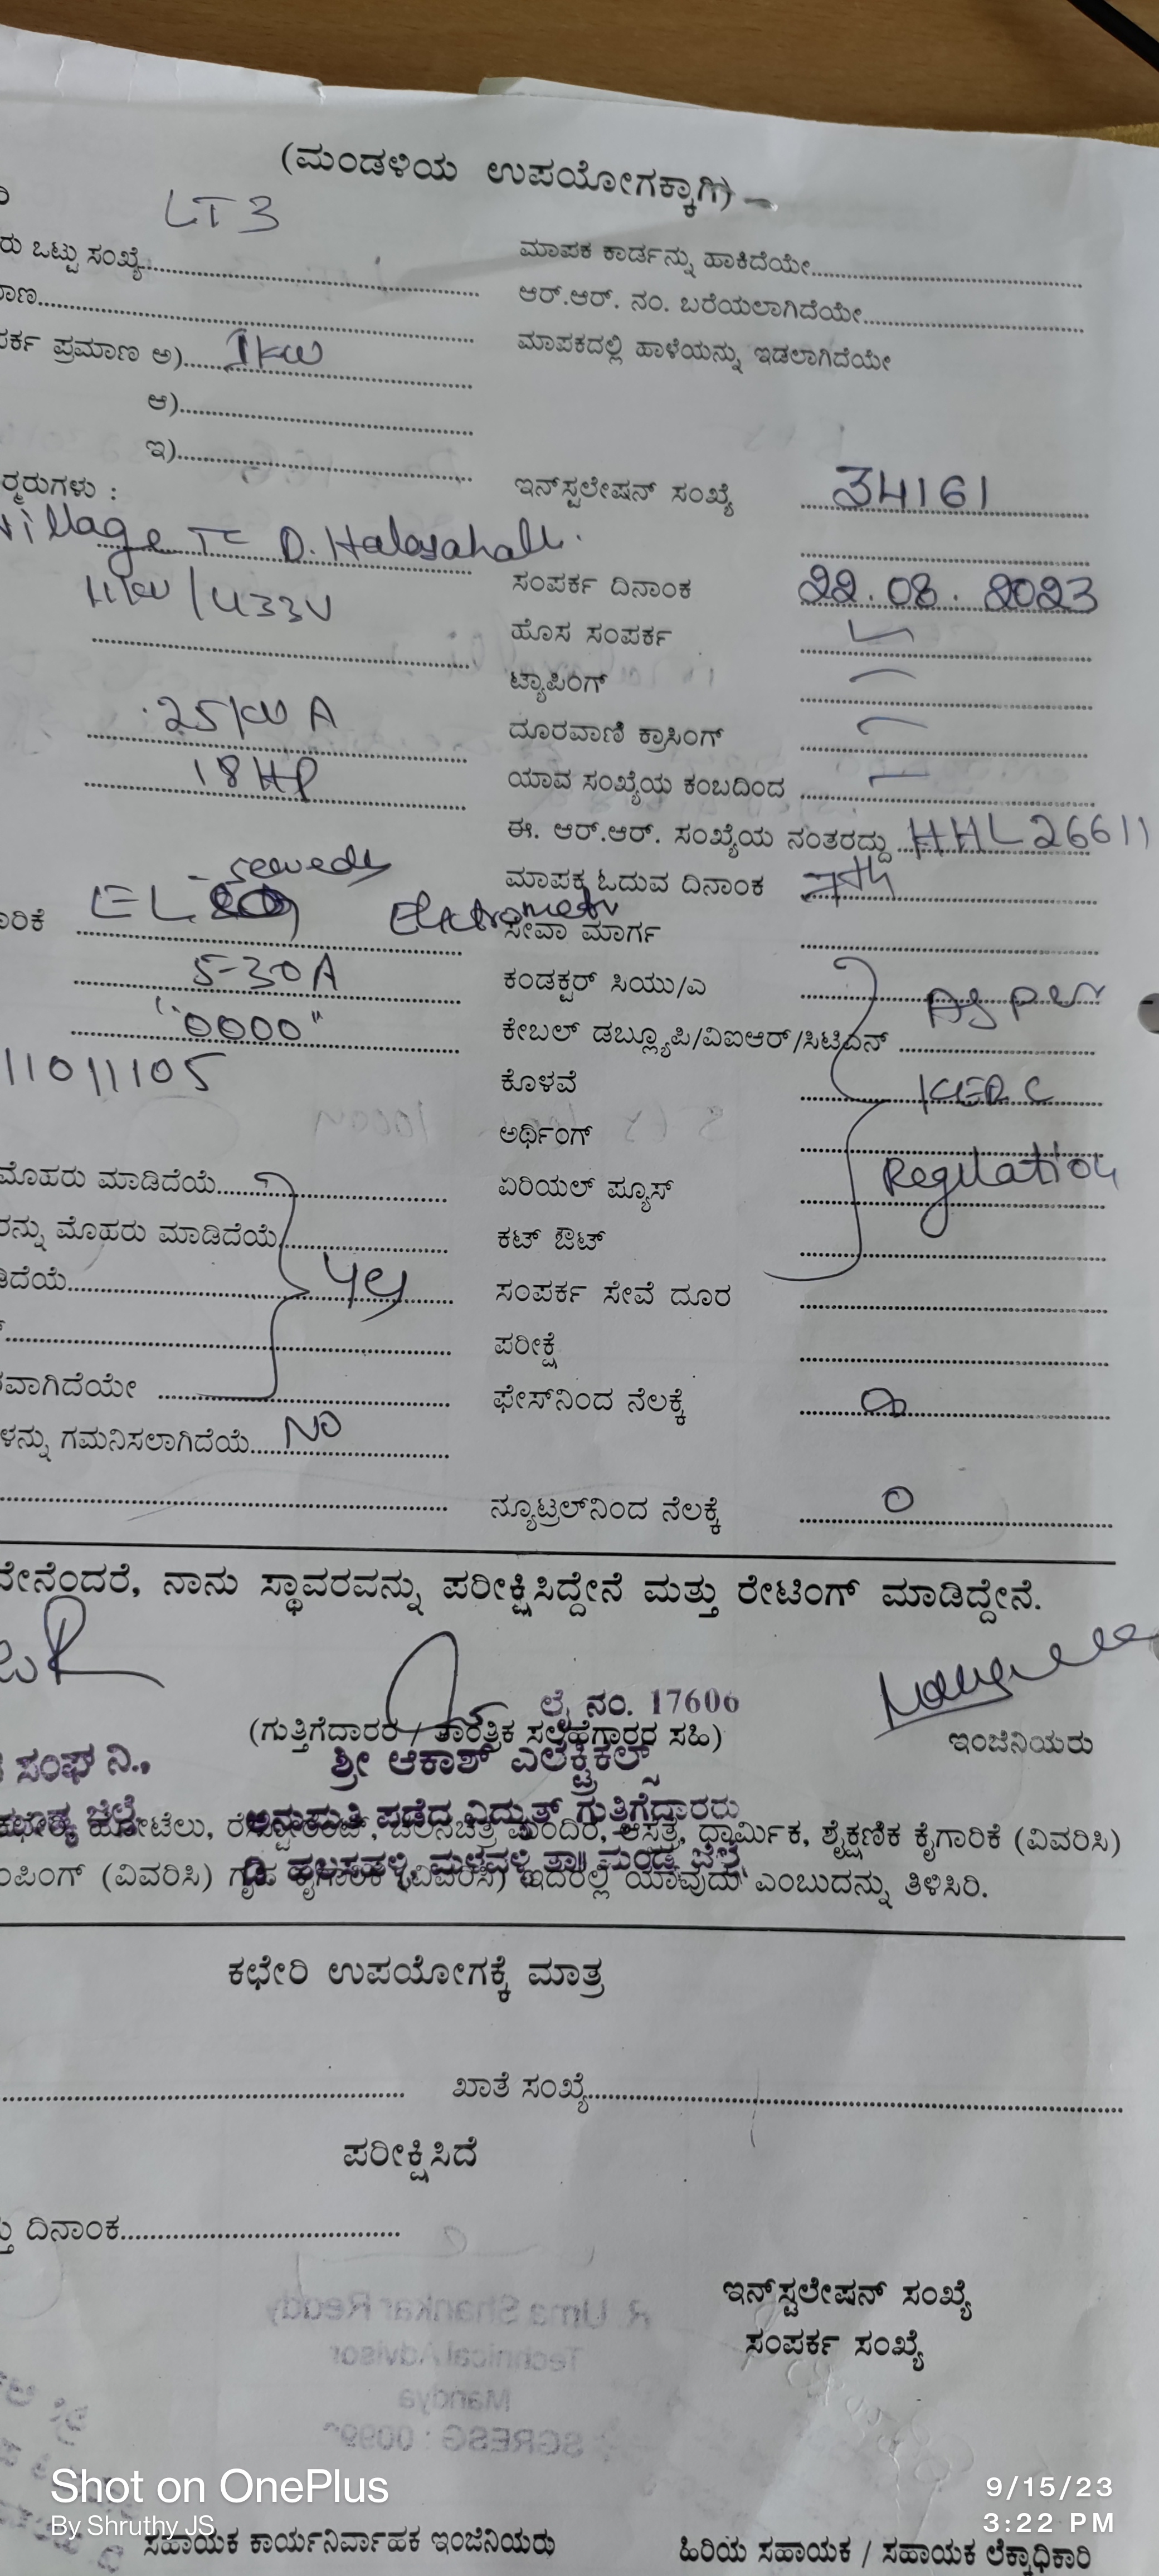 (ಮಂಡಳಿಯ ಉಪಯೋಗಕ್ಕಾಗಿ)
LT 3
ರು ಒಟ್ಟು ಸಂಖ್ಯೆ
ಮಾಪಕ ಕಾರ್ಡನ್ನು ಹಾಕಿದೆಯೇ
ಆರ್.ಆರ್. ನಂ. ಬರೆಯಲಾಗಿದೆಯೇ
ಪರ್ಕ ಪ್ರಮಾಣ ಅ) 1kw
ಮಾಪಕದಲ್ಲಿ ಹಾಳೆಯನ್ನು ಇಡಲಾಗಿದೆಯೇ
ಆ)
ಇ)
ರ್ಮರುಗಳು :
ಇನ್‌ಸ್ಟಲೇಷನ್ ಸಂಖ್ಯೆ 34161
village Tc D. Halasahalli
11kv/433V
ಸಂಪರ್ಕ ದಿನಾಂಕ 22.08.2023
ಹೊಸ ಸಂಪರ್ಕ
ಟ್ಯಾಪಿಂಗ್
25 KV A
ದೂರವಾಣಿ ಕ್ರಾಸಿಂಗ್
18 HP
ಯಾವ ಸಂಖ್ಯೆಯ ಕಂಬದಿಂದ
ಈ. ಆರ್.ಆರ್. ಸಂಖ್ಯೆಯ ನಂತರದ್ದು HHL26611
ಮಾಪಕ ಓದುವ ದಿನಾಂಕ 7th
ಾರಿಕೆ
ಸೇವಾ ಮಾರ್ಗ
5-30A
ಕಂಡಕ್ಟರ್ ಸಿಯು/ಎ
As per
"0000"
ಕೇಬಲ್ ಡಬ್ಲ್ಯೂಪಿ/ವಿಐಆರ್/ಸಿಟಿದಿನ್
11011105
ಕೊಳವೆ
KERC
ಅರ್ಥಿಂಗ್
ಮೊಹರು ಮಾಡಿದೆಯೆ
ಏರಿಯಲ್ ಪ್ಯೂಸ್
Regulation
ರನ್ನು ಮೊಹರು ಮಾಡಿದೆಯೆ
ಕಟ್ ಔಟ್
ಡಿದೆಯೆ
yes
ಸಂಪರ್ಕ ಸೇವೆ ದೂರ
ಪರೀಕ್ಷೆ
ರವಾಗಿದೆಯೇ
ಫೇಸ್‌ನಿಂದ ನೆಲಕ್ಕೆ
ಳನ್ನು ಗಮನಿಸಲಾಗಿದೆಯೆ NO
ನ್ಯೂಟ್ರಲ್‌ನಿಂದ ನೆಲಕ್ಕೆ 0
ನೇನೆಂದರೆ, ನಾನು ಸ್ಥಾವರವನ್ನು ಪರೀಕ್ಷಿಸಿದ್ದೇನೆ ಮತ್ತು ರೇಟಿಂಗ್ ಮಾಡಿದ್ದೇನೆ.
ಲೈ ನಂ. 17606
(ಗುತ್ತಿಗೆದಾರರ / ತಾಂತ್ರಿಕ ಸಲಹೆಗಾರರ ಸಹಿ)
ಇಂಜಿನಿಯರು
ಸಂಘ ನಿ.,
ಶ್ರೀ ಆಕಾಶ್ ಎಲೆಕ್ಟ್ರಿಕಲ್ಸ್
ಅನುಮತಿ ಪಡೆದ ವಿದ್ಯುತ್ ಗುತ್ತಿಗೆದಾರರು
ಹೋಟೆಲು, ರೆಸ್ಟೋರೆಂಟ್, ಚಲನಚಿತ್ರ ಮಂದಿರ, ಆಸ್ಪತ್ರೆ, ಧಾರ್ಮಿಕ, ಶೈಕ್ಷಣಿಕ ಕೈಗಾರಿಕೆ (ವಿವರಿಸಿ)
ಡಿ. ಹಲಸಹಳ್ಳಿ, ಮಳವಳ್ಳಿ ತಾ॥ ಮಂಡ್ಯ ಜಿಲ್ಲೆ
ಂಪಿಂಗ್ (ವಿವರಿಸಿ) ಗೃಹ ಕೈಗಾರಿಕೆ (ವಿವರಿಸಿ) ಇದರಲ್ಲಿ ಯಾವುದು ಎಂಬುದನ್ನು ತಿಳಿಸಿರಿ.
ಕಛೇರಿ ಉಪಯೋಗಕ್ಕೆ ಮಾತ್ರ
ಖಾತೆ ಸಂಖ್ಯೆ
ಪರೀಕ್ಷಿಸಿದೆ
ದಿನಾಂಕ
ಇನ್‌ಸ್ಟಲೇಷನ್ ಸಂಖ್ಯೆ
ಸಂಪರ್ಕ ಸಂಖ್ಯೆ
Shot on OnePlus
By Shruthy JS
9/15/23
3:22 PM
ಸಹಾಯಕ ಕಾರ್ಯನಿರ್ವಾಹಕ ಇಂಜಿನಿಯರು
ಹಿರಿಯ ಸಹಾಯಕ / ಸಹಾಯಕ ಲೆಕ್ಕಾಧಿಕಾರಿ